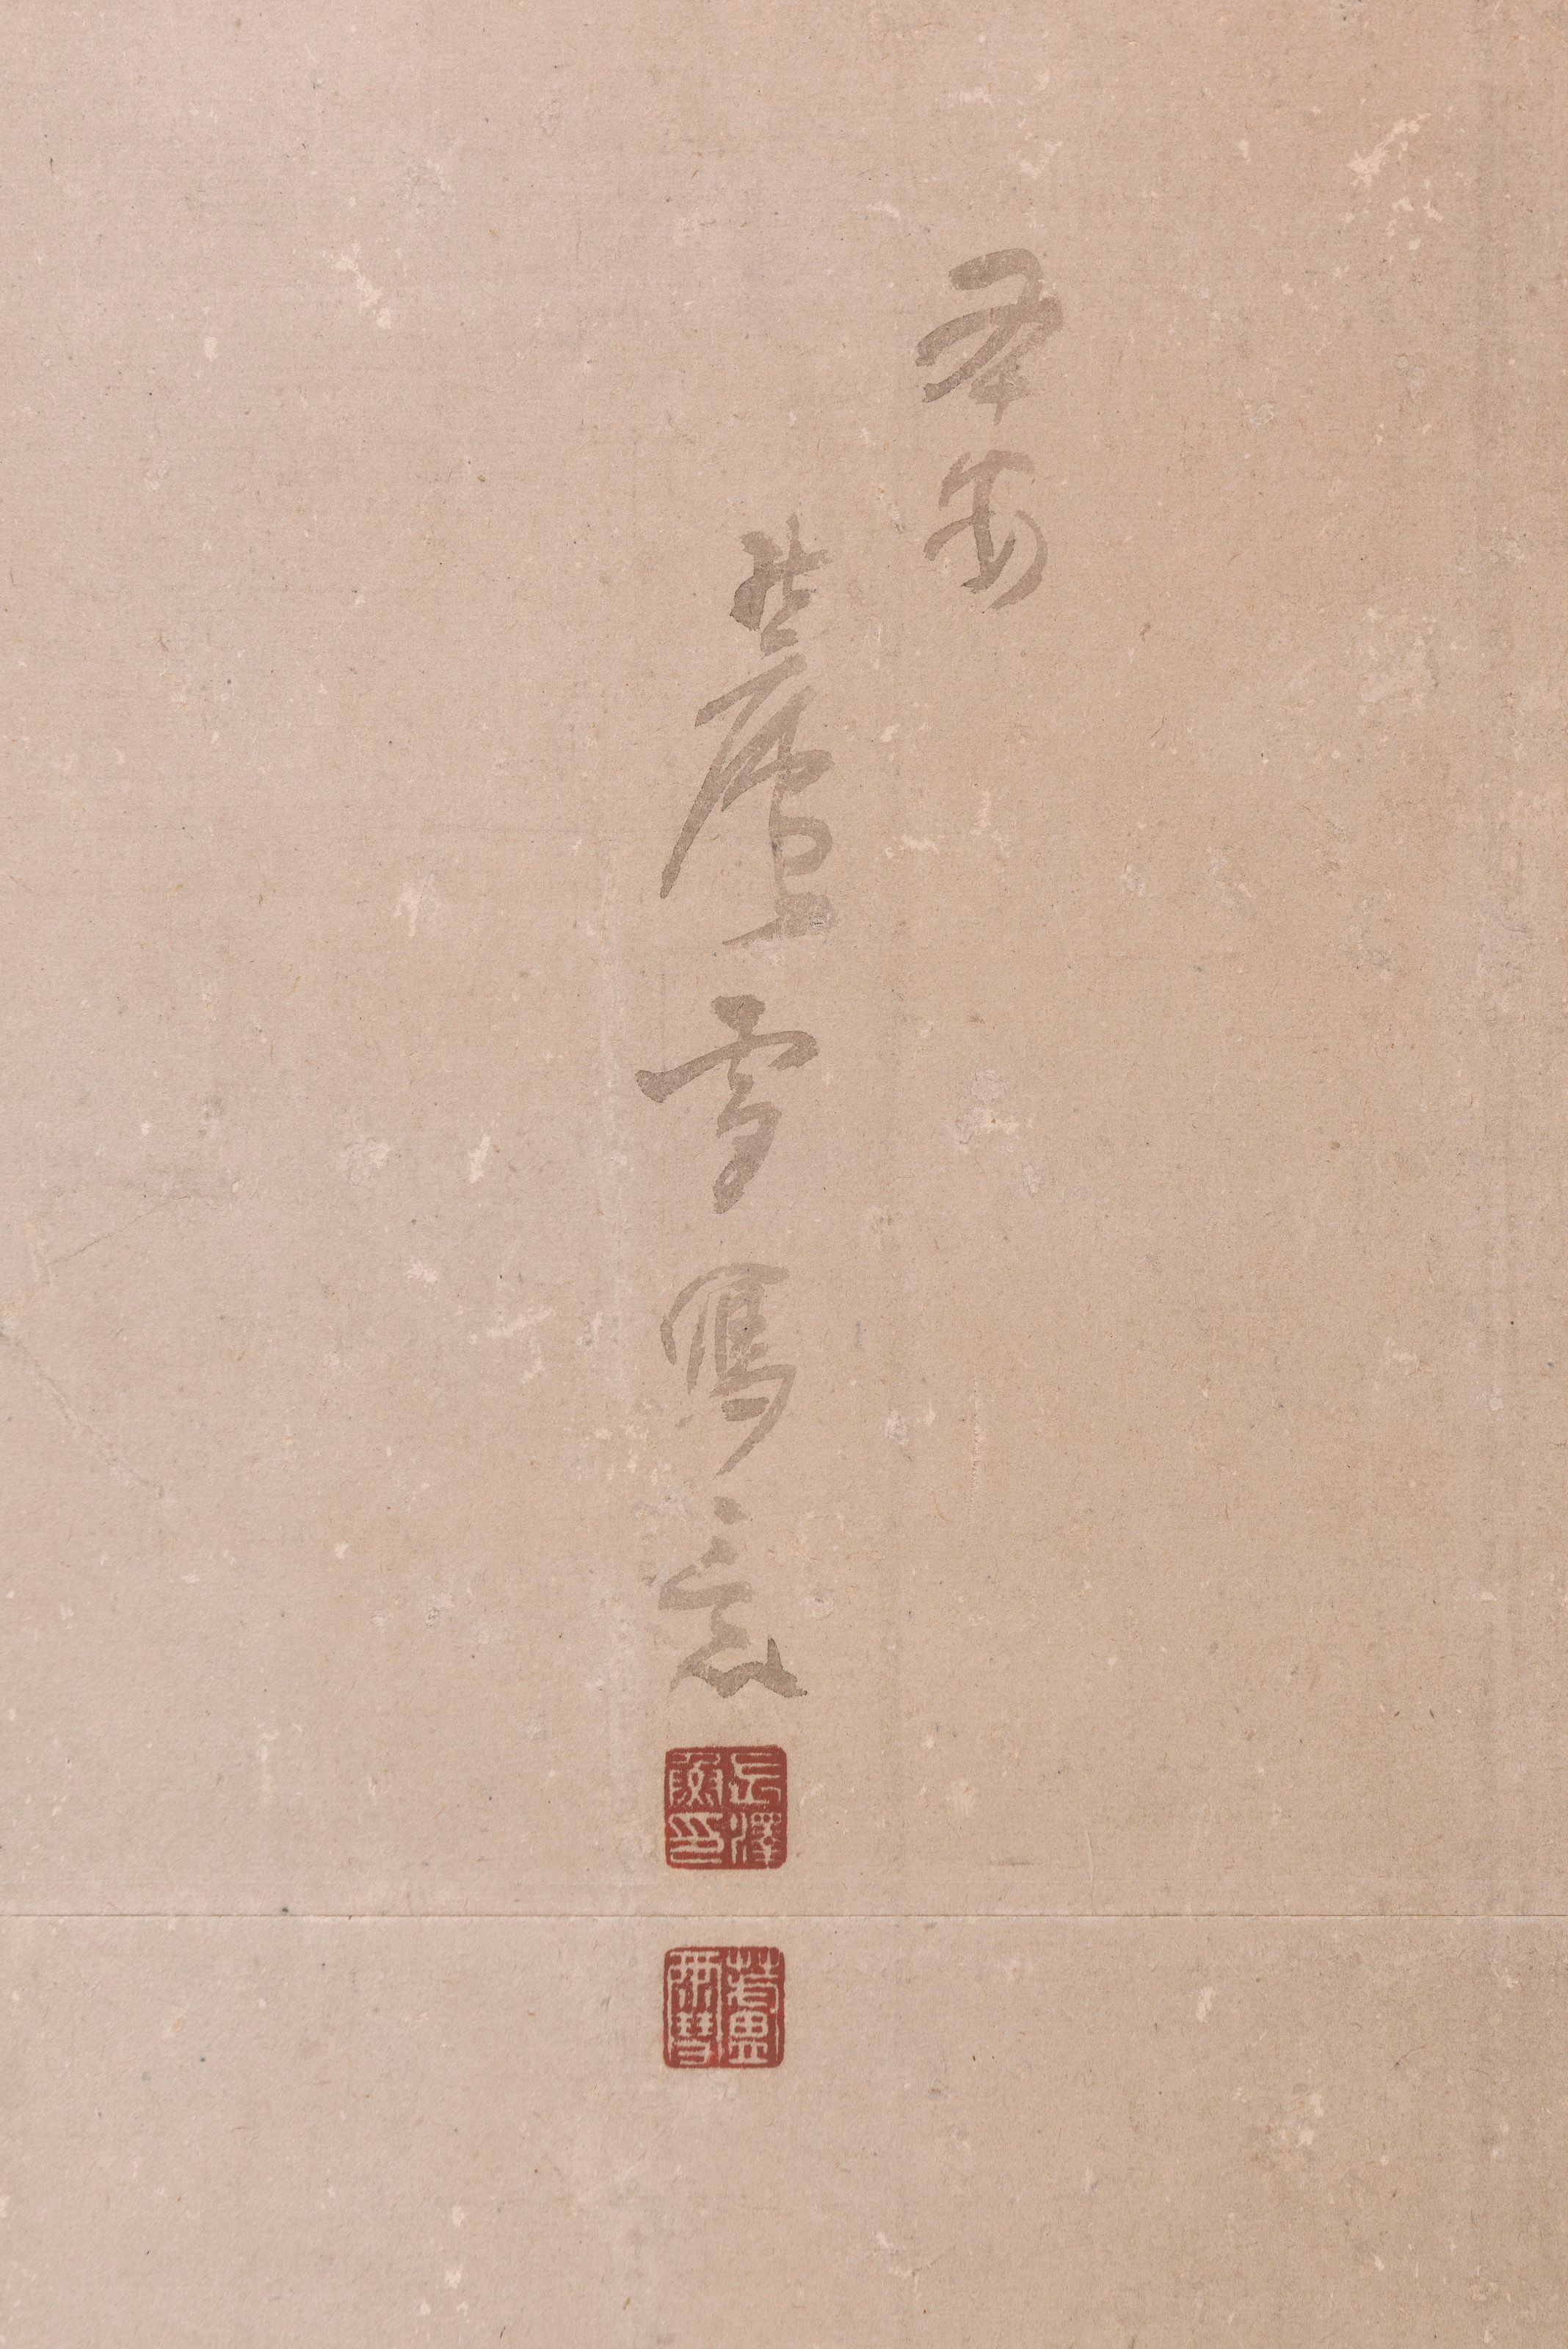 平安
蘆雪寫意
長澤
魚印
蘆
雪